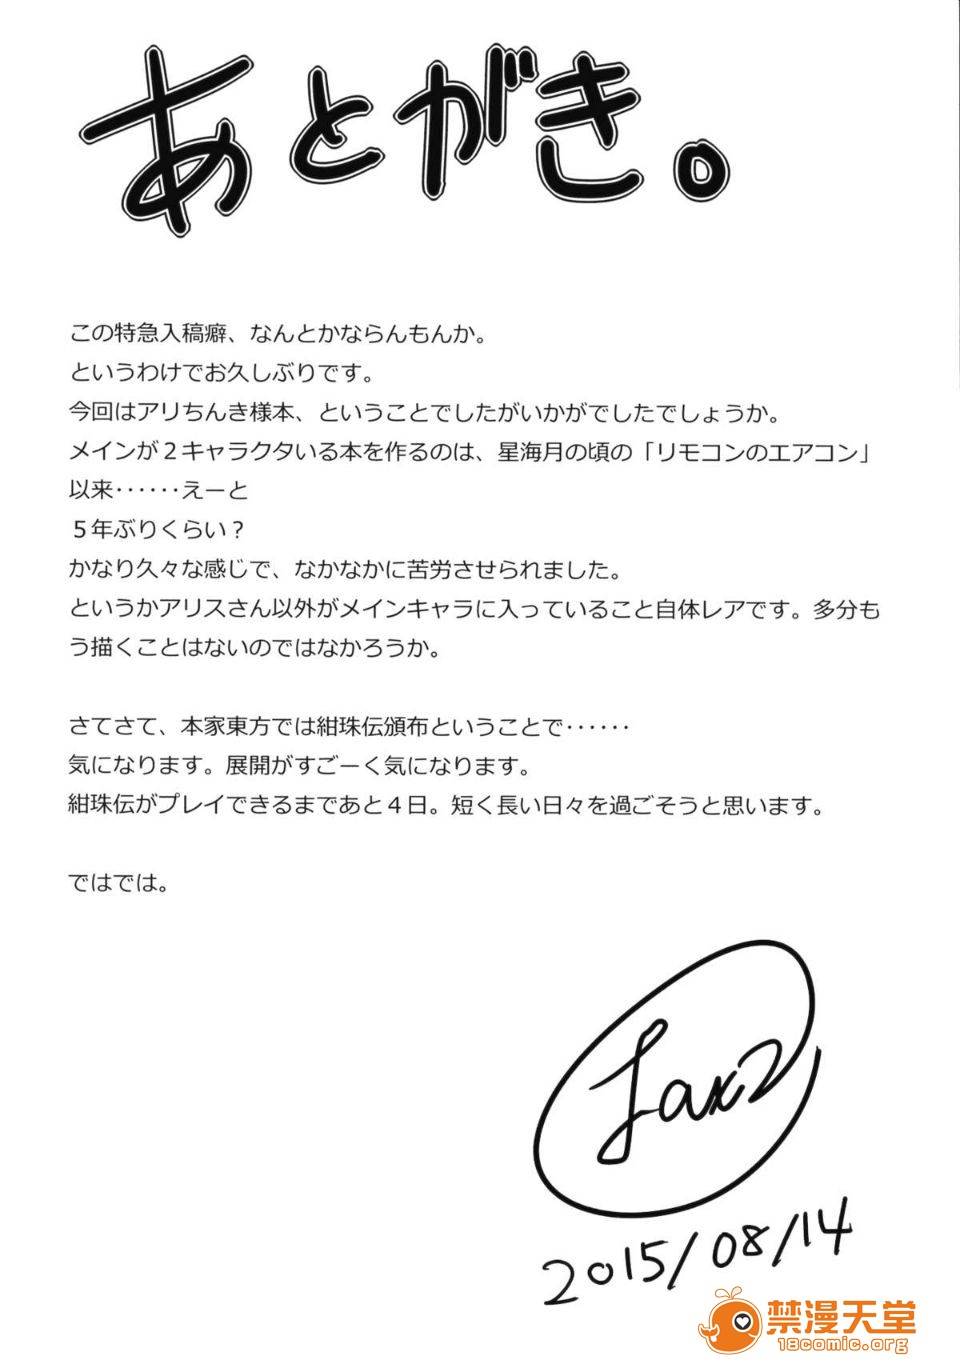 あとがき。
この特急入稿癖、なんとかならんもんか。
というわけでお久しぶりです。
今回はアリちんき様本、ということでしたがいかがでしたでしょうか。
メインが２キャラクタいる本を作るのは、星海月の頃の「リモコンのエアコン」
以来‥‥‥えーと
５年ぶりくらい？
かなり久々な感じで、なかなかに苦労させられました。
というかアリスさん以外がメインキャラに入っていること自体レアです。多分も
う描くことはないのではなかろうか。
さてさて、本家東方では紺珠伝頒布ということで‥‥‥
気になります。展開がすごーく気になります。
紺珠伝がプレイできるまであと４日。短く長い日々を過ごそうと思います。
ではでは。
fax2
2015/08/14
禁漫天堂
18comic.org